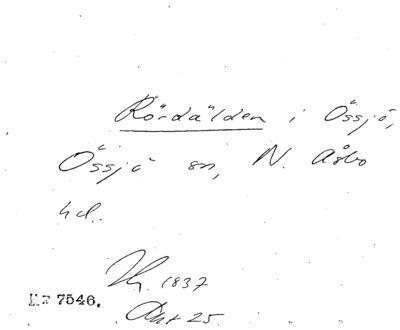 Rördälden i Össjö,
Össjö sn, N. Åsbo
hd.
1837
7546.
Akt 25